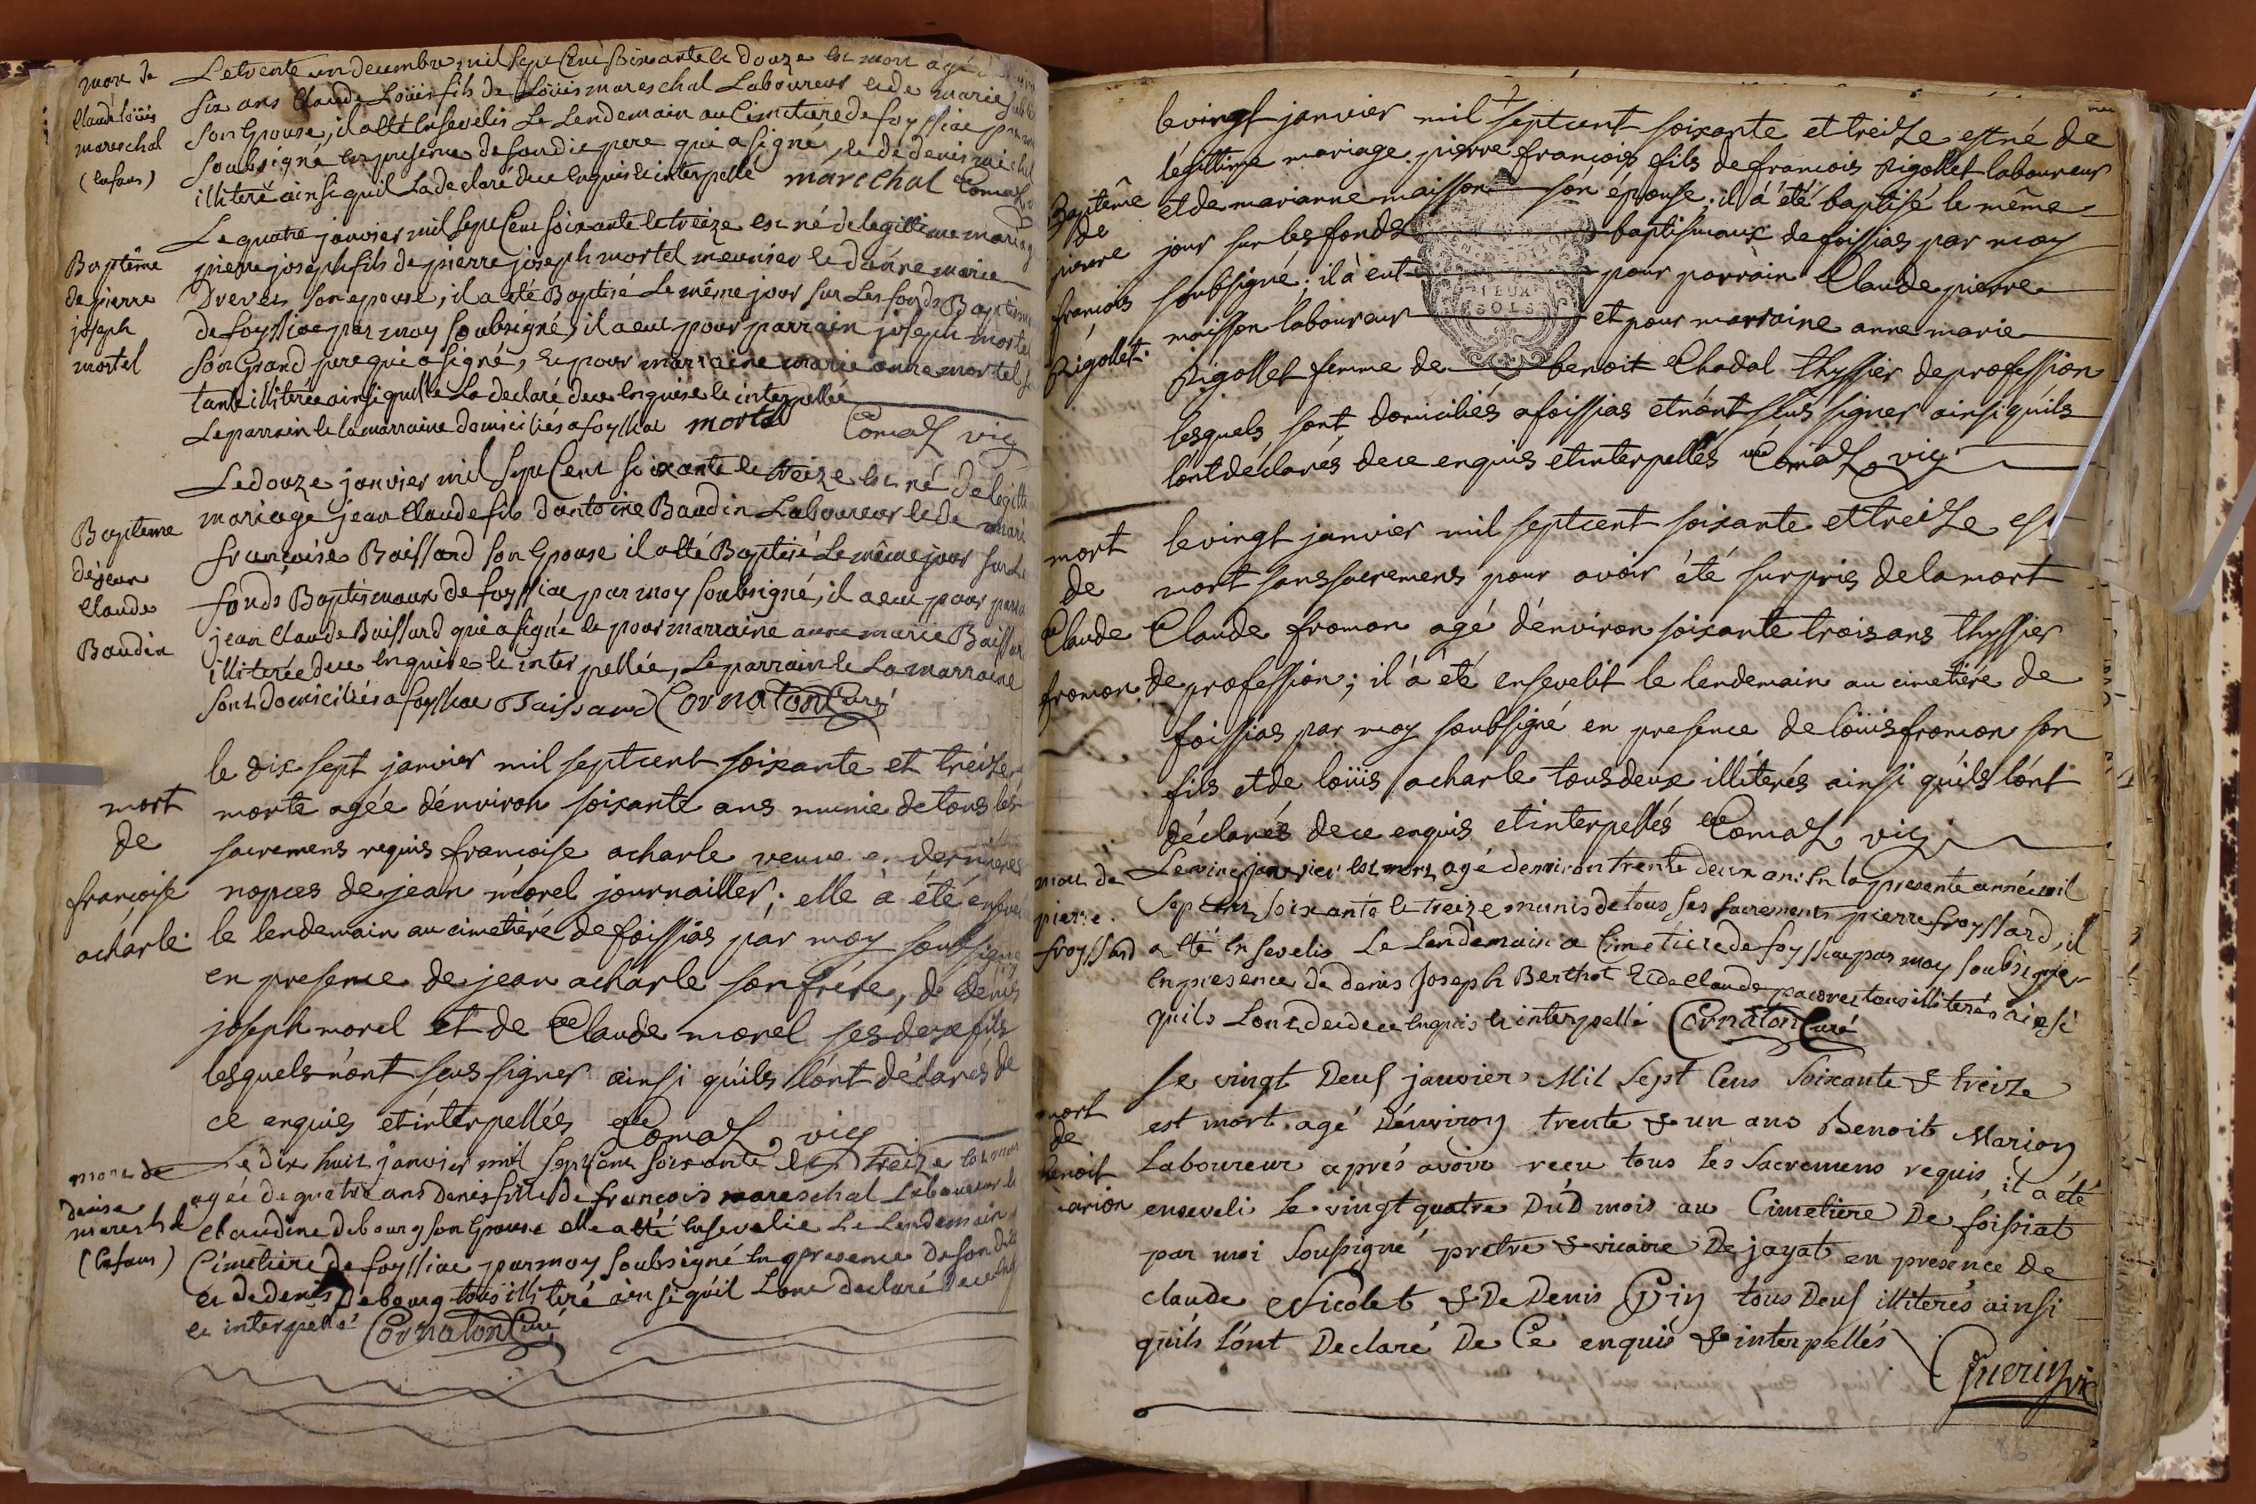 mort de
Claude loüis
mareschal
(Enfans)
Le trente un decembre mil Sept Cent Soixante et douze est mort agé
Six ans Claude Loüis fils de Loüis mareschal Laboureur et de marie
Son Epouse, il a eté Ensevelis Le Lendemain au Cimetiere de foyssiac par moy
Soubsigné en presence de Son dit pere qui a signé, et de denis michel
illiteré ainsi quil La declaré de ce Enquis et interpellé marechal Comas
Baptême
de pierre
joseph
mortel
Le quatre janvier mil Sept Cent Soixante et treize est né de legittime mariag
pierre joseph fils de pierre joseph mortel meunier et danne marie
Drevet son epouse, il a eté Baptisé Le même jour sur Les fonds Baptism
de foyssiac par moy Soubsigné, il a eut pour parrain joseph mortel
Son Grand pere qui a signé, et pour marraine marie anne mortel sa
tante illiterée ainsi quelle La declaré de ce Enquise et interpellée
Le parrain et la marraine domiciliés a foyssiac mortel Comas vic
Bapteme
de jean
Claude
Baudin
Le douze janvier mil Sept Cent Soixante et treize est né de legitt
mariage jean Claude fils dantoine Baudin Laboureur et de marie
françoise Baissard Son Epouse il a eté Baptisé Le même jour sur Le
fonds Baptismaux de foyssiac par moy Soubsigné, il a eut pour parra
jean Claude Buissard qui a signé et pour marraine anne marie Baissar
illiterée de ce Enquise et interpellée, Le parrain et La marraine
Sont domiciliés a foyssiac Baissard Cornaton Curé
mort
de
françoise
acharle
le dix sept janvier mil sept cent soixante et treize
morte agée dénviron soixante ans munie de tous les
sacremens requis francoise acharle veuve en dernieres
nopces de jean morel journaillier; elle à été ensevel
le lendemain au cimetiére de foissias par moy soubsigné
en presence de jean acharle son frére, de denis
joseph morel et de Claude morel ses deux fils
lesquels nónt sçus signer ainsi quíls lónt déclarés de
ce enquis et interpellés Comas vic
mort de
denise
mareschal
(Enfans)
Le dix huit janvier mil Sept Cent Soixante et treize est mor
agée de quatre ans denise fille de françois mareschal Laboureur et
Claudine debourg son Epouse elle a eté Ensevelie Le Lendemain
Cimetiere de foyssiac par moy Soubsigné En presence de son
et de denis Debourg tous illiteré ainsi quil Lont declaré de ce
et interpellé Cornaton Curé
Baptême
de
pierre
francois
Rigollet
le vingt janvier mil septcent soixante et treize est né de
légittime mariage pierre francois fils de francois Rigollet laboureur
et de marianne maisson son épouse; il à été baptisé le même
jour sur les fonds baptismaux de foissias par moy
soubsigné; il à eut pour parrain Claude pierre
maisson laboureur et pour marraine anne marie
Rigollet femme de benoit Chadal thyssier de profession
lesquels sont domiciliés a foissias et nónt sçus signer ainsi quíls
lont déclarés de ce enquis et interpellés Comas vic
mort
de
Claude
fromon
le vingt janvier mil septcent soixante et treize est
mort sans sacremens pour avoir été surpris de la mort
Claude fromon agé dénviron soixante trois ans thyssier
de profession; il à été ensevelit le lendemain au cimetiére de
foissias par moy soubsigné en presence de loüis fromon son
fils et de loüis acharle tous deux illiterés ainsi quíls lónt
déclarés de ce enquis et interpellés Comas vic
mort de
pierre
froyssard
Le vingt janvier est mort agé denviron trente deux ans En la presente année mil
Sept Cent Soixante et treize munis de tous Ses Sacrements pierre froyssard, il
a eté Ensevelis Le Lendemain a Cimetiere de foyssiac par moy Soubsigné
En presence de denis Joseph Berthot Et de Claude pacoret tous illiterés ainsi
quils Lont de ce Enquis et interpellé Cornaton Curé
mort
de
Benoit
marion
Le vingt Deux janvier Mil Sept Cens Soixante & treize
est mort agé D'énviron trente & un ans Benoit Marion
Laboureur aprés avoir recu tous les Sacremens requis, il a été
enseveli Le vingt quatre Du D mois au Cimetiere De foissiat
par moi Soussigné prétre & vicaire De jayat en presence De
claude Nicolet & De Denis Pin tous Deux illiterés ainsi
quils l'ónt Declaré De Ce enquis & interpellés
Guerin vic